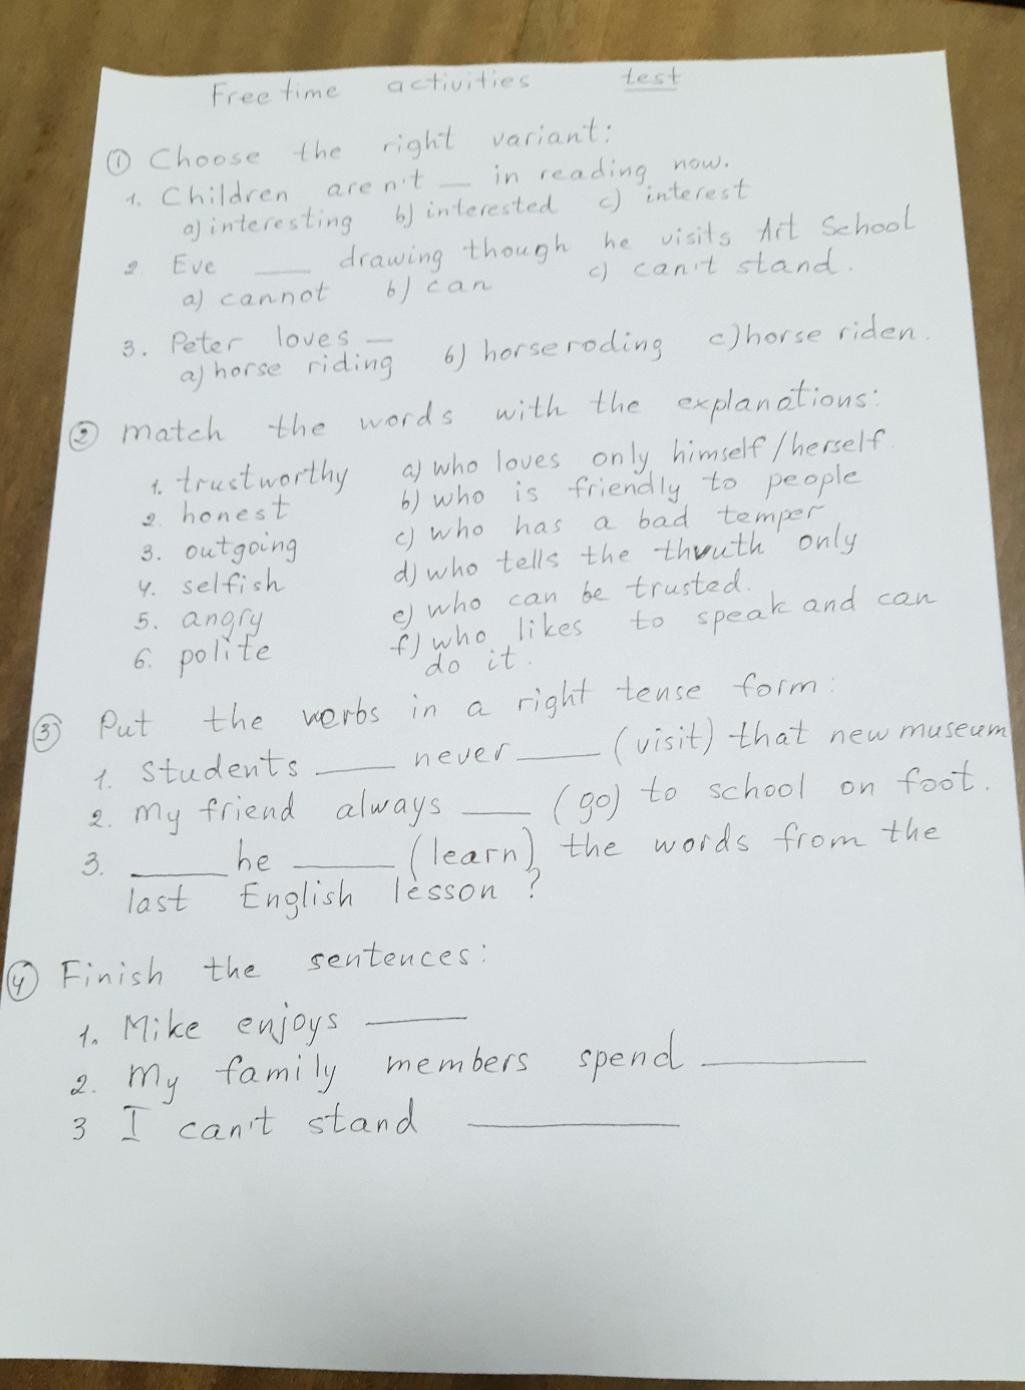 Free time activities test
① Choose the right variant:
1. Children aren't __ in reading now.
a) interesting b) interested c) interest
2 Eve ___ drawing though he visits Art School
a) cannot b) can c) can't stand.
3. Peter loves __
a) horse riding b) horse roding c) horse riden.
② match the words with the explanations:
1. trustworthy a) who loves only himself/herself.
2. honest b) who is friendly to people
3. outgoing c) who has a bad temper
4. selfish d) who tells the thruth only
5. angry e) who can be trusted.
6. polite f) who likes to speak and can
do it.
③ Put the verbs in a right tense form:
1. Students ____ never ____ (visit) that new museum
2. my friend always ____ (go) to school on foot.
3. ____ he ____ (learn) the words from the
last English lesson ?
④ Finish the sentences:
1. Mike enjoys ____
2. my family members spend ____
3 I can't stand ____